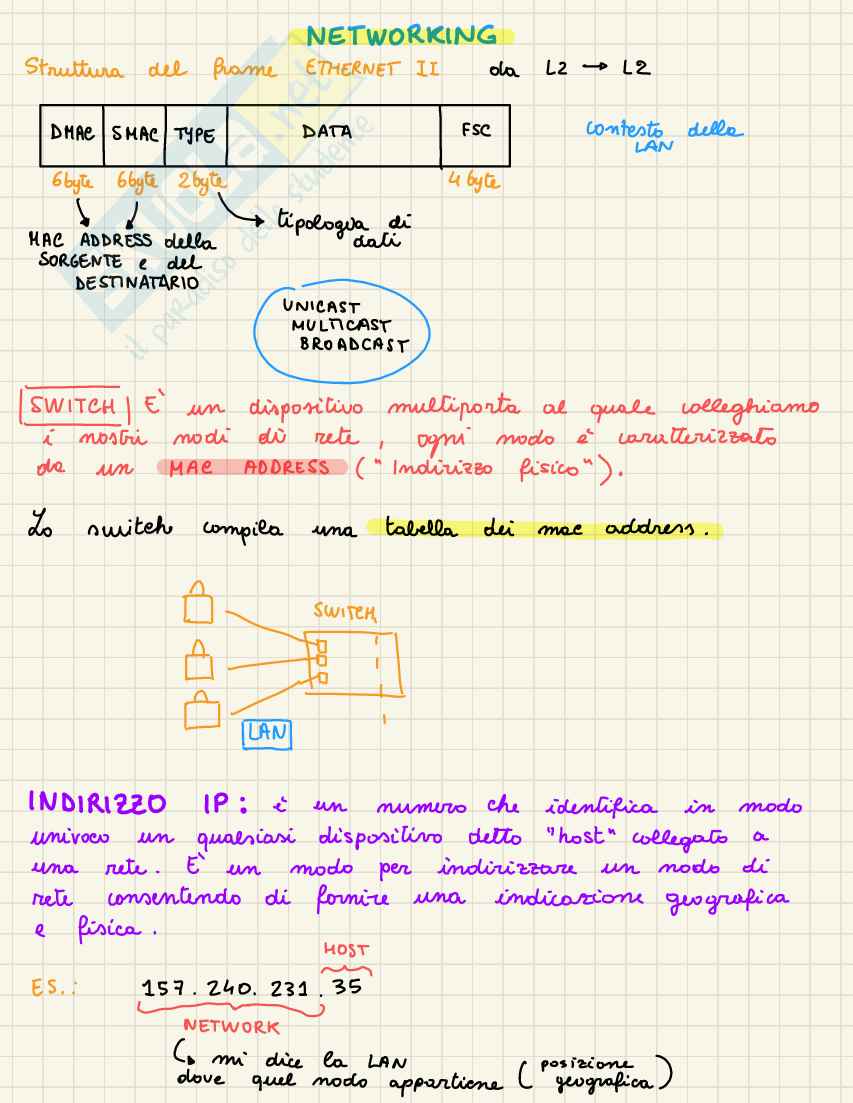 NETWORKING
Struttura del frame ETHERNET II da L2 → L2
DMAC SMAC TYPE DATA FSC
contesto della
LAN
6byte 6byte 2byte 4 byte
tipologia di
dati
MAC ADDRESS della
SORGENTE e del
DESTINATARIO
UNICAST
MULTICAST
BROADCAST
SWITCH È un dispositivo multiporta al quale colleghiamo
i nostri nodi di rete, ogni nodo è caratterizzato
da un MAC ADDRESS ("Indirizzo fisico").
Lo switch compila una tabella dei mac address.
SWITCH
LAN
INDIRIZZO IP: è un numero che identifica in modo
univoco un qualsiasi dispositivo detto "host" collegato a
una rete. È un modo per indirizzare un nodo di
rete consentendo di fornire una indicazione geografica
e fisica.
HOST
ES.: 157.240.231.35
NETWORK
↳ mi dice la LAN
dove quel nodo appartiene (posizione
geografica)
il paradiso dello studente